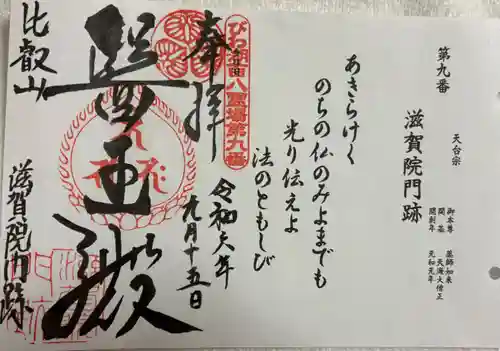 第九番
天台宗
滋賀院門跡
御本尊 薬師如来
開基 天海大僧正
開創年 元和元年
あきらけく
のちの仏のみよまでも
光り伝えよ
法のともしび
びわ湖百八霊場第九番
奉拝
令和六年
九月十五日
醫王殿
比叡山
滋賀院門跡